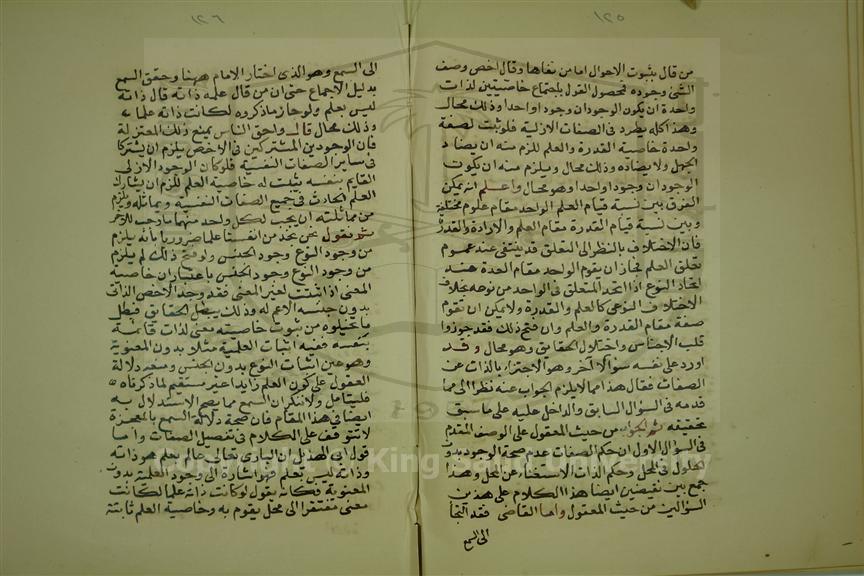 ١٢٥
من قال بثبوت الاحوال اما من نفاها وقال اخص وصف
الشئ وجوده فمحصول القول باجتماع خاصيتين لذات
واحدة ان يكون الوجودان وجودا واحدا وذلك محال
وهذا كله يطرد في الصفات الازلية فلو ثبت لصفة
واحدة خاصية القدرة والعلم للزم منه ان يضاد
الجهل ولا يضاده وذلك محال ويلزم منه ان يكون
الوجودان وجودا واحدا وهو محال واعلم انه يمكن
الفرق بين نسبة قيام العلم الواحد مقام علوم مختلفة
وبين نسبة قيام القدرة مقام العلم والارادة والقدرة
فان الاختلاف بالنظر الى التعلق قد ينتفى عند عموم
تعلق العلم فجاز ان يقوم الواحد مقام العدة عند
اتحاد النوع اذا اتحد المتعلق في الواحد من نوعه بخلاف
الاختلاف النوعى كالعلم والقدرة ولا يمكن ان تقوم
صفة مقام القدرة والعلم وان فتح ذلك فقد جوزوا
قلب الاجناس واختلال الحقايق وهو محال وقد
اورد على نفسه سؤالا آخر وهو الاجتزاء بالذات عن
الصفات فقال هذا مما لا يلزم الجواب عنه نظرا الى مما
قدمه في السؤال السابق والداخل عليه على ما سبق
تحقيقه ثم الجواب من حيث المعقول على الوصف المقدم
في السؤال الاول ان حكم الصفات عدم صحة الوجود بدون
الحلول في المحل وحكم الذات الاستغناء عن المحل وهذا
جمع بين نقيضين ايضا هذا الكلام على هذين
السؤالين من حيث المعقول واما القاضى فقد التجأ
الى السمع
١٢٦
الى السمع وهو الذى اختار الامام ههنا وحقق السمع
بدليل الاجماع حتى ان من قال علمه ذاته قال ذاته
ليس بعلم ولو جاز ما ذكروه لكانت ذاته علما
وذلك محال قال واحق الناس بمنع ذلك المعتزلة
فان الوجودين المشتركين في الاخص يلزم ان يشتركا
في ساير الصفات النفسية فلو كان الوجود الازلى
القايم بنفسه يثبت له خاصية العلم للزم ان يشارك
العلم الحادث في جميع الصفات النفسية ويماثله ويلزم
من مماثلته ان يجب لكل واحد منهما ما وجب للآخر
ثم نقول نحن نجد من انفسنا علما ضروريا بأنه يلزم
من وجود النوع وجود الجنس ولو فتح ذلك لم يلزم
من وجود النوع وجود الجنس باعتبار ان خاصية
المعنى اذا ثبتت لغير المعنى فقد وجد الاخص الذاتى
بدون جنسه الاعم له وذلك يبطل الحقايق فبطل
ما تخيلوه من ثبوت خاصيته معنى لذات قائمة
بنفسه ففيه اثبات العلمية مثلا بدون المعنوية
وهو عين اثبات النوع بدون الجنس ومنعه دلالة
العقول على كون العلم زايدا غير مستقيم لما ذكرناه
فليتامل ولا ننكر ان السمع مما يصح الاستدلال به
ايضا في هذا المقام فان صحة دلالة السمع بالمعجزة
لا تتوقف على الكلام في تفصيل الصفات واما
قول ابى الهذيل ان البارى تعالى عالم بعلم هو ذاته
وذاته ليس بعلم فهو اشارة الى وجود العلمية بدون
المعنوية فكأنه يقول لو كانت ذاته علما لكانت
معنى مفتقرا الى محل يقوم به وخاصية العلم ثابتة